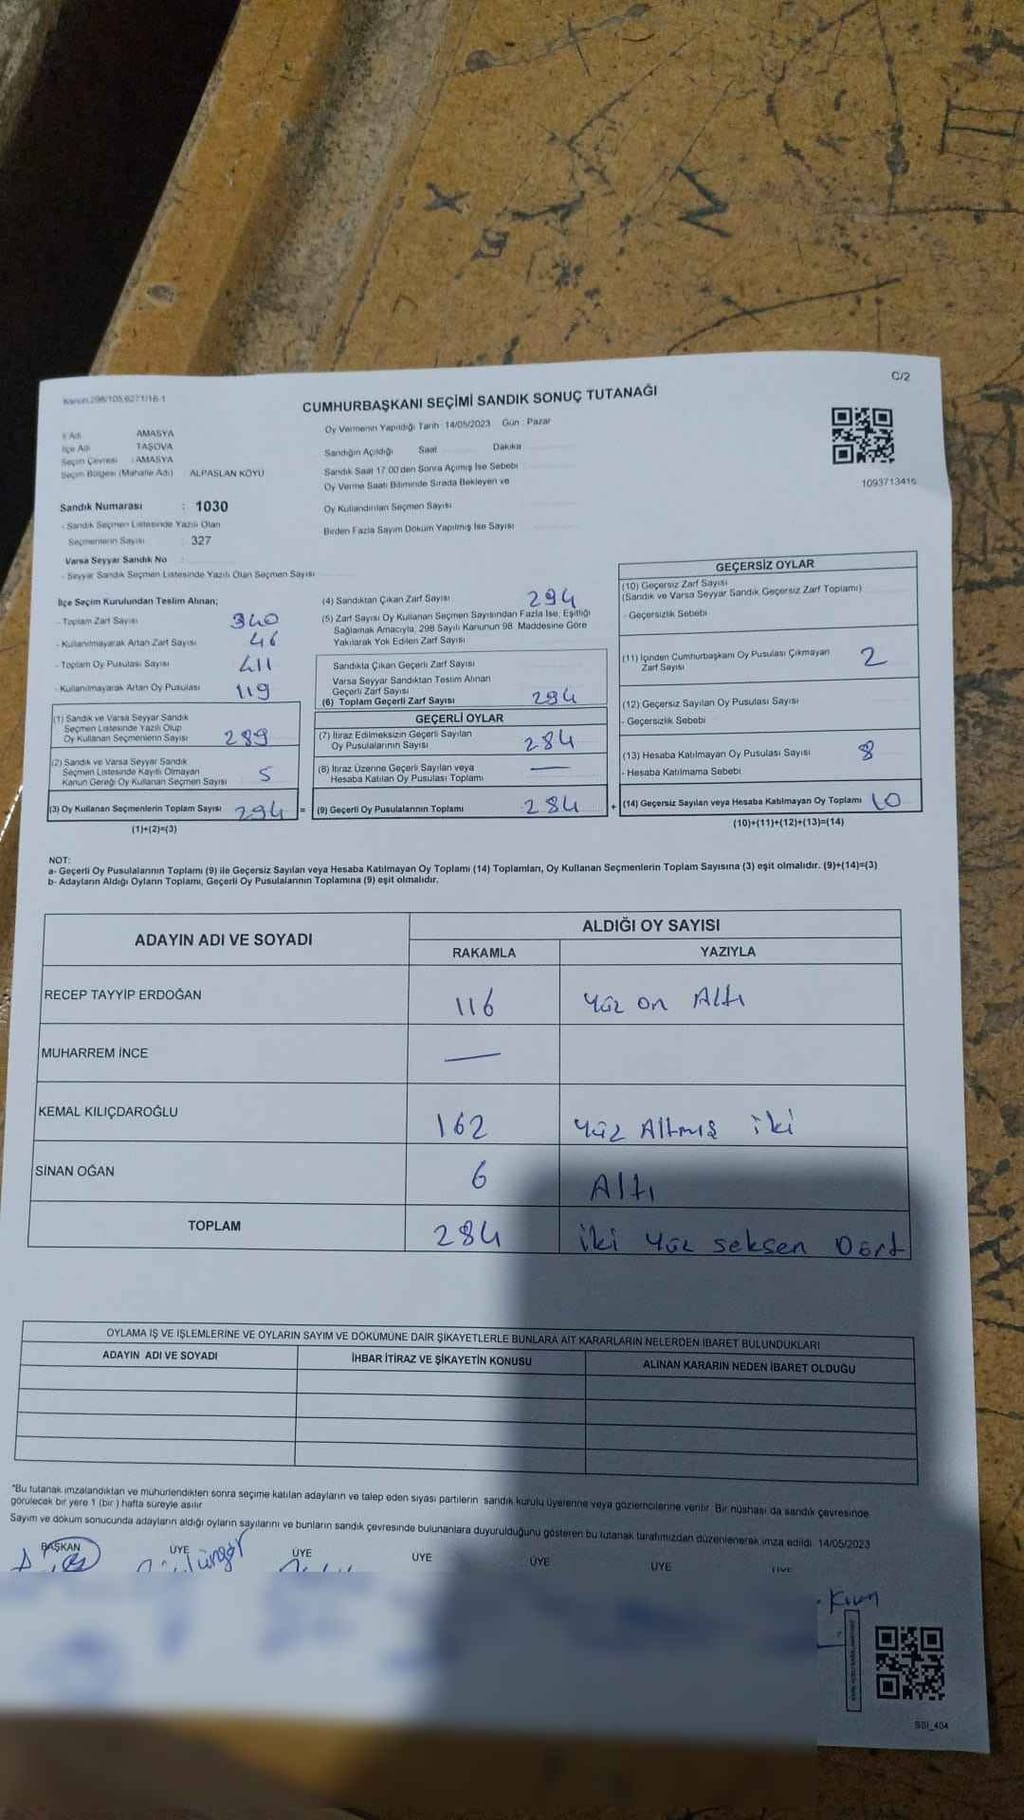 C/2
Kanun 298/105,6271/16-1
CUMHURBAŞKANI SEÇİMİ SANDIK SONUÇ TUTANAĞI
İl Adı AMASYA
İlçe Adı TAŞOVA
Seçim Çevresi : AMASYA
Seçim Bölgesi (Mahalle Adı) ALPASLAN KÖYÜ
Oy Vermenin Yapıldığı Tarih 14/05/2023 Gün : Pazar
Sandığın Açıldığı Saat Dakika
Sandık Saat 17.00'den Sonra Açılmış İse Sebebi
Oy Verme Saati Bitiminde Sırada Bekleyen ve
Oy Kullandırılan Seçmen Sayısı
Birden Fazla Sayım Döküm Yapılmış İse Sayısı
1093713415
Sandık Numarası : 1030
- Sandık Seçmen Listesinde Yazılı Olan
Seçmenlerin Sayısı : 327
Varsa Seyyar Sandık No
- Seyyar Sandık Seçmen Listesinde Yazılı Olan Seçmen Sayısı
İlçe Seçim Kurulundan Teslim Alınan;
- Toplam Zarf Sayısı 340
- Kullanılmayarak Artan Zarf Sayısı 46
- Toplam Oy Pusulası Sayısı 411
- Kullanılmayarak Artan Oy Pusulası 119
(1) Sandık ve Varsa Seyyar Sandık
Seçmen Listesinde Yazılı Olup
Oy Kullanan Seçmenlerin Sayısı 289
(2) Sandık ve Varsa Seyyar Sandık
Seçmen Listesinde Kayıtlı Olmayan
Kanun Gereği Oy Kullanan Seçmen Sayısı 5
(3) Oy Kullanan Seçmenlerin Toplam Sayısı 294 =
(1)+(2)=(3)
(4) Sandıktan Çıkan Zarf Sayısı 294
(5) Zarf Sayısı Oy Kullanan Seçmen Sayısından Fazla İse, Eşitliği
Sağlamak Amacıyla, 298 Sayılı Kanunun 98. Maddesine Göre
Yakılarak Yok Edilen Zarf Sayısı
Sandıkta Çıkan Geçerli Zarf Sayısı
Varsa Seyyar Sandıktan Teslim Alınan
Geçerli Zarf Sayısı
(6) Toplam Geçerli Zarf Sayısı 294
GEÇERLİ OYLAR
(7) İtiraz Edilmeksizin Geçerli Sayılan
Oy Pusulalarının Sayısı 284
(8) İtiraz Üzerine Geçerli Sayılan veya
Hesaba Katılan Oy Pusulası Toplamı —
(9) Geçerli Oy Pusulalarının Toplamı 284 +
GEÇERSİZ OYLAR
(10) Geçersiz Zarf Sayısı
(Sandık ve Varsa Seyyar Sandık Geçersiz Zarf Toplamı)
- Geçersizlik Sebebi
(11) İçinden Cumhurbaşkanı Oy Pusulası Çıkmayan
Zarf Sayısı 2
(12) Geçersiz Sayılan Oy Pusulası Sayısı
- Geçersizlik Sebebi
(13) Hesaba Katılmayan Oy Pusulası Sayısı 8
- Hesaba Katılmama Sebebi
(14) Geçersiz Sayılan veya Hesaba Katılmayan Oy Toplamı 10
(10)+(11)+(12)+(13)=(14)
NOT:
a- Geçerli Oy Pusulalarının Toplamı (9) ile Geçersiz Sayılan veya Hesaba Katılmayan Oy Toplamı (14) Toplamları, Oy Kullanan Seçmenlerin Toplam Sayısına (3) eşit olmalıdır. (9)+(14)=(3)
b- Adayların Aldığı Oyların Toplamı, Geçerli Oy Pusulalarının Toplamına (9) eşit olmalıdır.
ADAYIN ADI VE SOYADI
ALDIĞI OY SAYISI
RAKAMLA YAZIYLA
RECEP TAYYİP ERDOĞAN 116 Yüz on Altı
MUHARREM İNCE —
KEMAL KILIÇDAROĞLU 162 Yüz Altmış iki
SİNAN OĞAN 6 Altı
TOPLAM 284 iki Yüz seksen Dört
OYLAMA İŞ VE İŞLEMLERİNE VE OYLARIN SAYIM VE DÖKÜMÜNE DAİR ŞİKAYETLERLE BUNLARA AİT KARARLARIN NELERDEN İBARET BULUNDUKLARI
ADAYIN ADI VE SOYADI İHBAR İTİRAZ VE ŞİKAYETİN KONUSU ALINAN KARARIN NEDEN İBARET OLDUĞU
*Bu tutanak imzalandıktan ve mühürlendikten sonra seçime katılan adayların ve talep eden siyasi partilerin sandık kurulu üyelerine veya gözlemcilerine verilir. Bir nüshası da sandık çevresinde
görülecek bir yere 1 (bir) hafta süreyle asılır
Sayım ve döküm sonucunda adayların aldığı oyların sayılarını ve bunların sandık çevresinde bulunanlara duyurulduğunu gösteren bu tutanak tarafımızdan düzenlenerek imza edildi. 14/05/2023
BAŞKAN ÜYE ÜYE ÜYE ÜYE ÜYE ÜYE